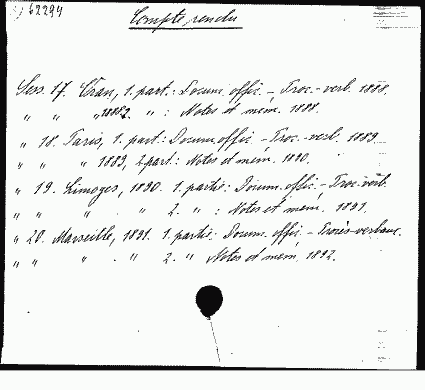 62294
Compte rendu
Sess. 17. Oran, 1. part.: Docum. offic. – Proc.-verb. 1888.
" " " 1888 2. " : Notes et mém. 1888.
" 18. Paris, 1. part.: Docum. offic. – Proc.-verb. 1889.
" " " 1889, 2. part.: Notes et mém. 1890.
" 19. Limoges, 1890. 1. partie: Docum. offic. – Proc.-verb.
" " " " 2. " : Notes et mém. 1891.
" 20. Marseille, 1891. 1. partie. Docum. offic. – Procès-verbaux.
" " " " 2. " Notes et mém. 1892.